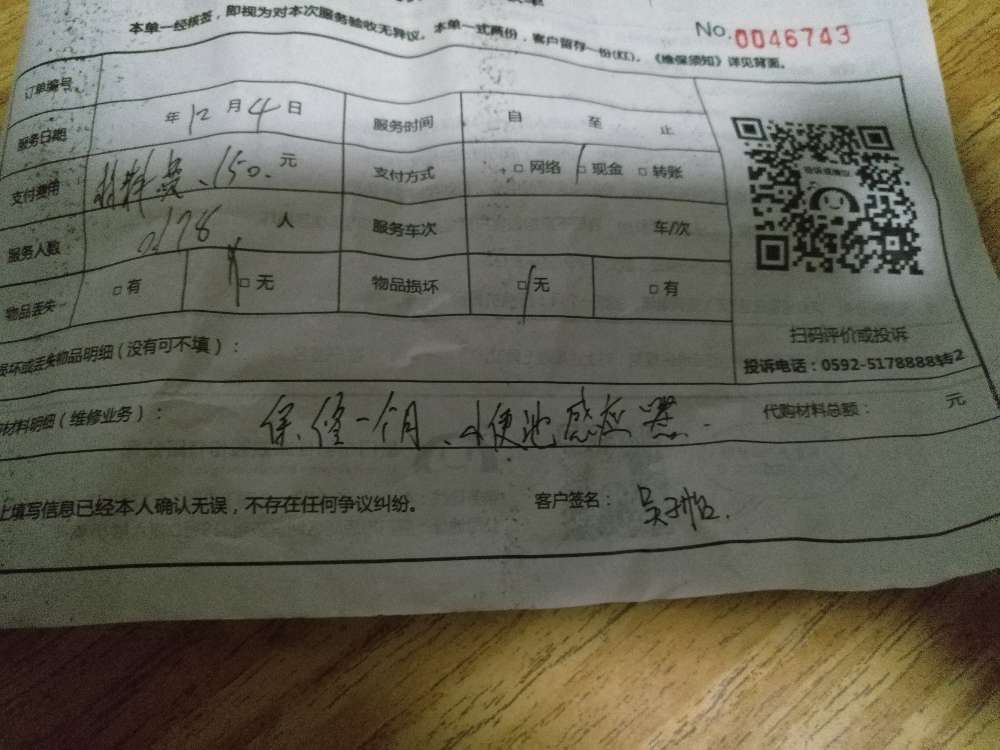 本单一经核签，即视为对本次服务验收无异议。本单一式两份，客户留存一份(红)。《维保须知》详见背面。
No. 0046743
订单编号
服务日期 年12月4日 服务时间 自 至 止
支付费用 材料费、150. 元 支付方式 □网络 □现金 □转账
服务人数 人 服务车次 车/次
物品丢失 □有 □无 物品损坏 □无 □有
扫码评价或投诉
投诉电话：0592-5178888转2
坏或丢失物品明细（没有可不填）：
材料明细（维修业务）： 保修一个月、小便池感应器. 代购材料总额： 元
上填写信息已经本人确认无误，不存在任何争议纠纷。 客户签名：